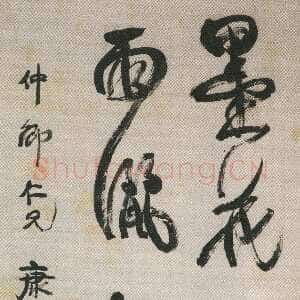 墨花
雨灑
仲卿仁兄康
Shufawang.CN